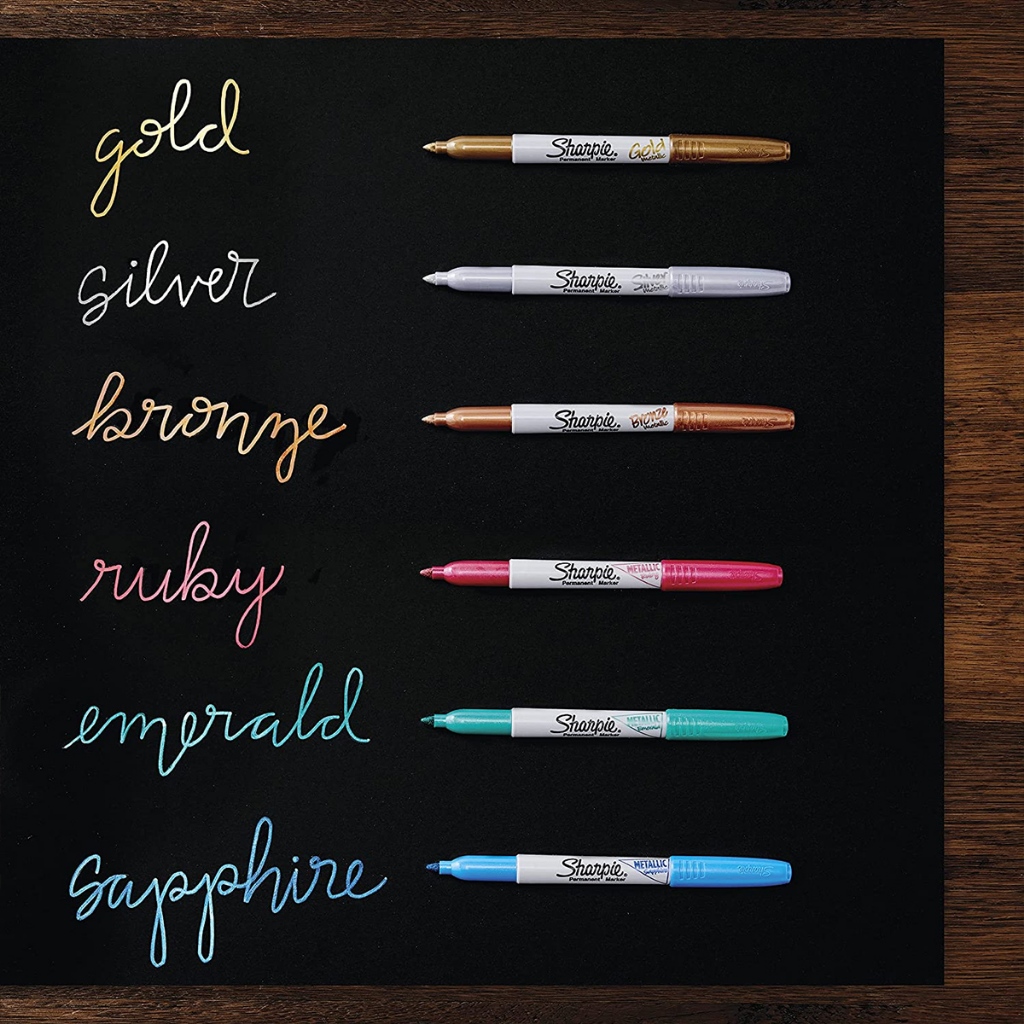 gold
Sharpie.
Permanent Marker
Gold
metallic
silver
Sharpie.
Permanent Marker
Silver
metallic
bronze
Sharpie.
Permanent Marker
Bronze
metallic
ruby
Sharpie.
Permanent Marker
METALLIC
Ruby
emerald
Sharpie.
Permanent Marker
METALLIC
Emerald
sapphire
Sharpie.
Permanent Marker
METALLIC
Sapphire